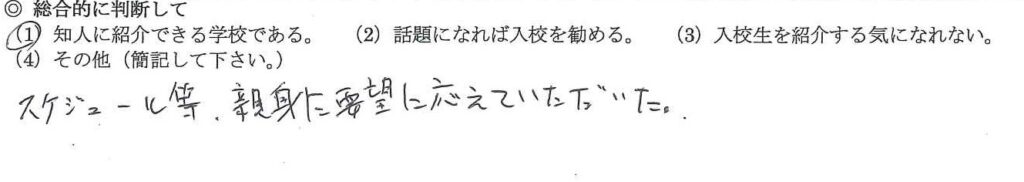 ◎ 総合的に判断して
(1) 知人に紹介できる学校である。 (2) 話題になれば入校を勧める。 (3) 入校生を紹介する気になれない。
(4) その他（簡記して下さい。）
スケジュール等、親身に要望に応えていただいた。